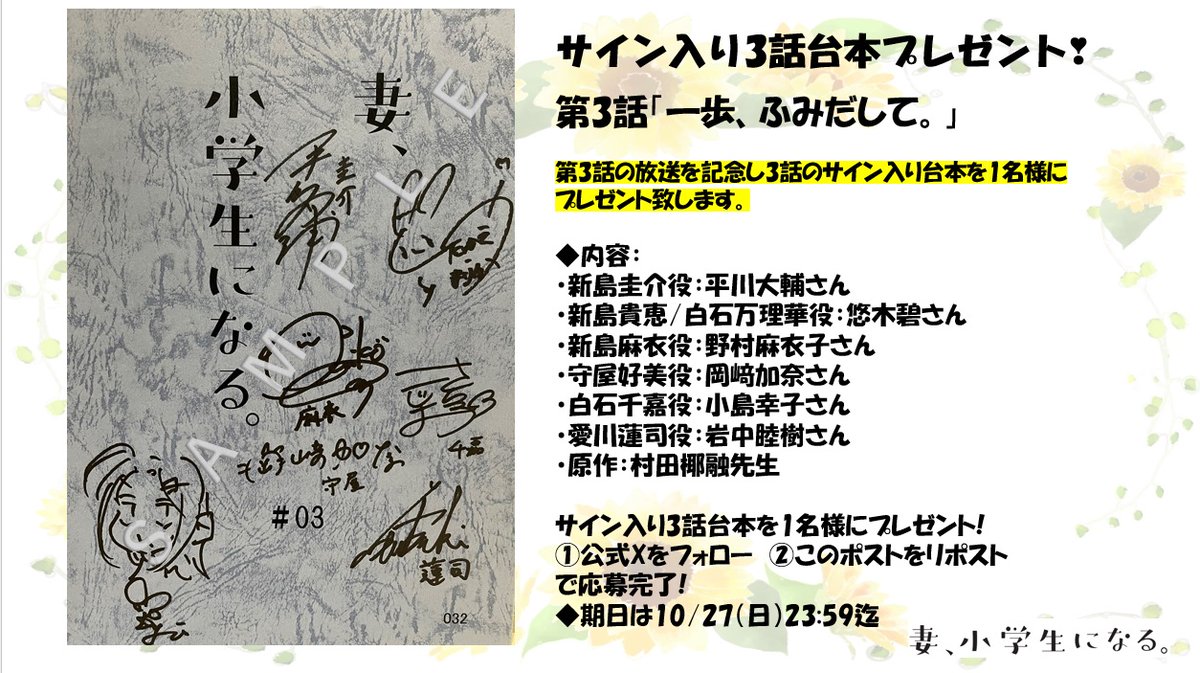 妻、
小学生になる。
圭介
麻衣
千嘉
守屋
#03
蓮司
032
SAMPLE
サイン入り3話台本プレゼント❣
第3話「一歩、ふみだして。」
第3話の放送を記念し3話のサイン入り台本を1名様に
プレゼント致します。
◆内容:
・新島圭介役:平川大輔さん
・新島貴恵/白石万理華役:悠木碧さん
・新島麻衣役:野村麻衣子さん
・守屋好美役:岡﨑加奈さん
・白石千嘉役:小島幸子さん
・愛川蓮司役:岩中睦樹さん
・原作:村田椰融先生
サイン入り3話台本を1名様にプレゼント!
①公式Xをフォロー ②このポストをリポスト
で応募完了!
◆期日は10/27(日)23:59迄
妻、小学生になる。